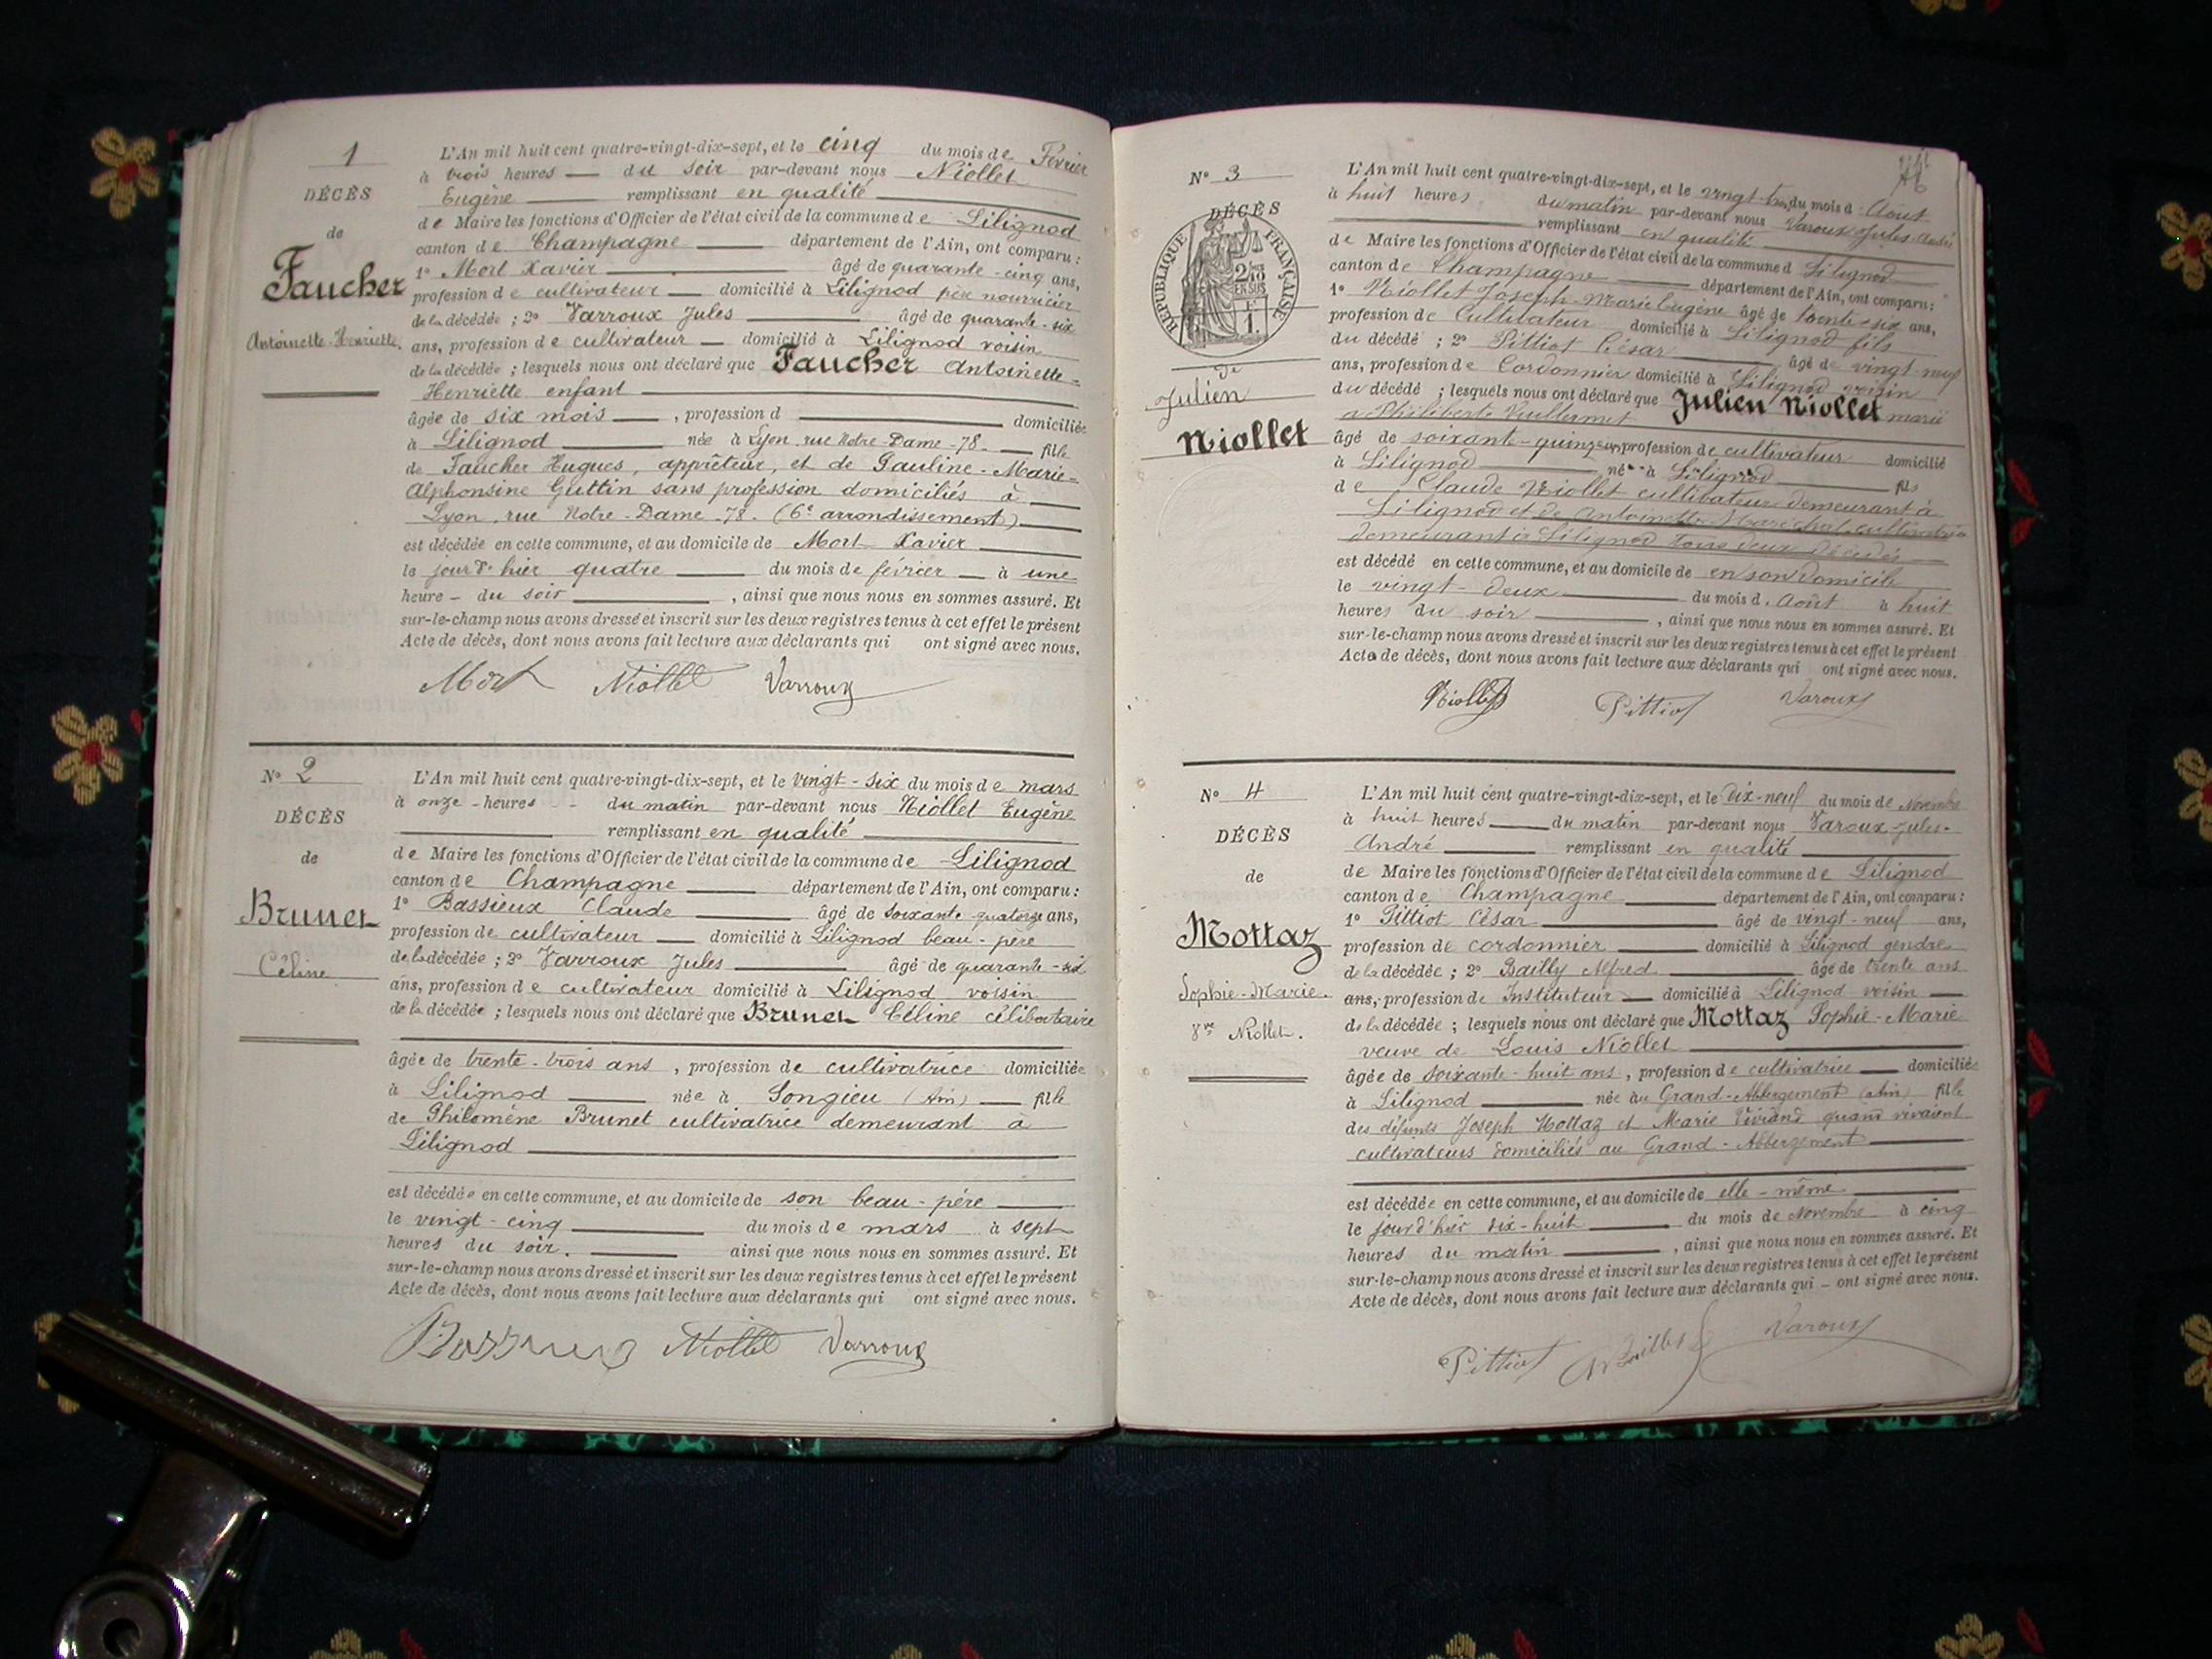 1
DÉCÈS
de
Faucher
Antoinette-Henriette.
L'An mil huit cent quatre-vingt-dix-sept, et le cinq du mois de Février
à trois heures — du soir par-devant nous Niollet
Eugène — remplissant en qualité
de Maire les fonctions d'Officier de l'état civil de la commune de Lilignod
canton de Champagne — département de l'Ain, ont comparu :
1° Mort Xavier — âgé de quarante-cinq ans,
profession de cultivateur — domicilié à Lilignod père nourricier
de la décédée ; 2° Varroux Jules — âgé de quarante-six
ans, profession de cultivateur — domicilié à Lilignod voisin
de la décédée ; lesquels nous ont déclaré que Faucher Antoinette-
Henriette enfant
âgée de six mois — , profession d — domiciliée
à Lilignod — née à Lyon, rue Notre-Dame-78- — fille
de Faucher Hugues, apprêteur, et de Pauline-Marie-
Alphonsine Guttin sans profession domiciliés à
Lyon, rue Notre-Dame-78. (6e arrondissement)
est décédée en cette commune, et au domicile de Mort Xavier
le jour d'hier quatre — du mois de février — à une
heure - du soir — , ainsi que nous nous en sommes assuré. Et
sur-le-champ nous avons dressé et inscrit sur les deux registres tenus à cet effet le présent
Acte de décès, dont nous avons fait lecture aux déclarants qui ont signé avec nous.
Mort Niollet Varroux
N° 2
DÉCÈS
de
Brunet
Céline
L'An mil huit cent quatre-vingt-dix-sept, et le vingt-six du mois de mars
à onze - heures - - du matin par-devant nous Niollet Eugène
— remplissant en qualité
de Maire les fonctions d'Officier de l'état civil de la commune de Lilignod
canton de Champagne — département de l'Ain, ont comparu :
1° Bassieux Claude — âgé de soixante-quatorze ans,
profession de cultivateur — domicilié à Lilignod beau-père
de la décédée ; 2° Varroux Jules — âgé de quarante-six
ans, profession de cultivateur domicilié à Lilignod voisin
de la décédée ; lesquels nous ont déclaré que Brunet Céline célibataire
âgée de trente-trois ans , profession de cultivatrice domiciliée
à Lilignod — née à Songieu (Ain) — fille
de Philomène Brunet cultivatrice demeurant à
Lilignod
est décédée en cette commune, et au domicile de son beau-père
le vingt-cinq — du mois de mars à sept
heures du soir. — ainsi que nous nous en sommes assuré. Et
sur-le-champ nous avons dressé et inscrit sur les deux registres tenus à cet effet le présent
Acte de décès, dont nous avons fait lecture aux déclarants qui ont signé avec nous.
Niollet Varroux
N° 3
DÉCÈS
RÉPUBLIQUE FRANÇAISE
de
Julien
Niollet
L'An mil huit cent quatre-vingt-dix-sept, et le vingt-trois du mois d Août
à huit heures du matin par-devant nous Varoux Jules André
— remplissant en qualité
de Maire les fonctions d'Officier de l'état civil de la commune d Lilignod
canton de Champagne — département de l'Ain, ont comparu :
1° Niollet Joseph-Marie Eugène âgé de trente-six ans,
profession de Cultivateur domicilié à Lilignod fils
du décédé ; 2° Pittiot César — âgé de vingt neuf
ans, profession de Cordonnier domicilié à Lilignod voisin
du décédé ; lesquels nous ont déclaré que Julien Niollet marié
a Philiberte Vuillermet
âgé de soixante-quinze ans, profession de cultivateur domicilié
à Lilignod — né à Lilignod — fils
de Claude Niollet cultivateur demeurant à
Lilignod et de Antoinette Maréchal cultivatrice
demeurant à Lilignod tous deux décédés
est décédé en cette commune, et au domicile de en son domicile
le vingt-deux — du mois d. Août à huit
heures du soir — , ainsi que nous nous en sommes assuré. Et
sur-le-champ nous avons dressé et inscrit sur les deux registres tenus à cet effet le présent
Acte de décès, dont nous avons fait lecture aux déclarants qui ont signé avec nous.
Niollet Pittiot Varoux
N° 4
DÉCÈS
de
Mottaz
Sophie-Marie.
Vve Niollet.
L'An mil huit cent quatre-vingt-dix-sept, et le dix-neuf du mois de Novembre
à huit heures — du matin par-devant nous Varoux Jules-
André — remplissant en qualité
de Maire les fonctions d'Officier de l'état civil de la commune de Lilignod
canton de Champagne — département de l'Ain, ont comparu :
1° Pittiot César — âgé de vingt-neuf ans,
profession de cordonnier — domicilié à Lilignod gendre
de la décédée ; 2° Bailly Alfred — âgé de trente ans
ans, profession de Instituteur — domicilié à Lilignod voisin —
de la décédée ; lesquels nous ont déclaré que Mottaz Sophie-Marie
veuve de Louis Niollet
âgée de soixante-huit ans , profession de cultivatrice — domiciliée
à Lilignod — née au Grand-Abbergement (Ain) fille
des défunts Joseph Mottaz et Marie Viviand quand vivaient
cultivateurs domiciliés au Grand-Abbergement
est décédée en cette commune, et au domicile de elle-même
le jour d'hier dix-huit — du mois de Novembre à cinq
heures du matin — , ainsi que nous nous en sommes assuré. Et
sur-le-champ nous avons dressé et inscrit sur les deux registres tenus à cet effet le présent
Acte de décès, dont nous avons fait lecture aux déclarants qui - ont signé avec nous.
Pittiot ABailly Varoux